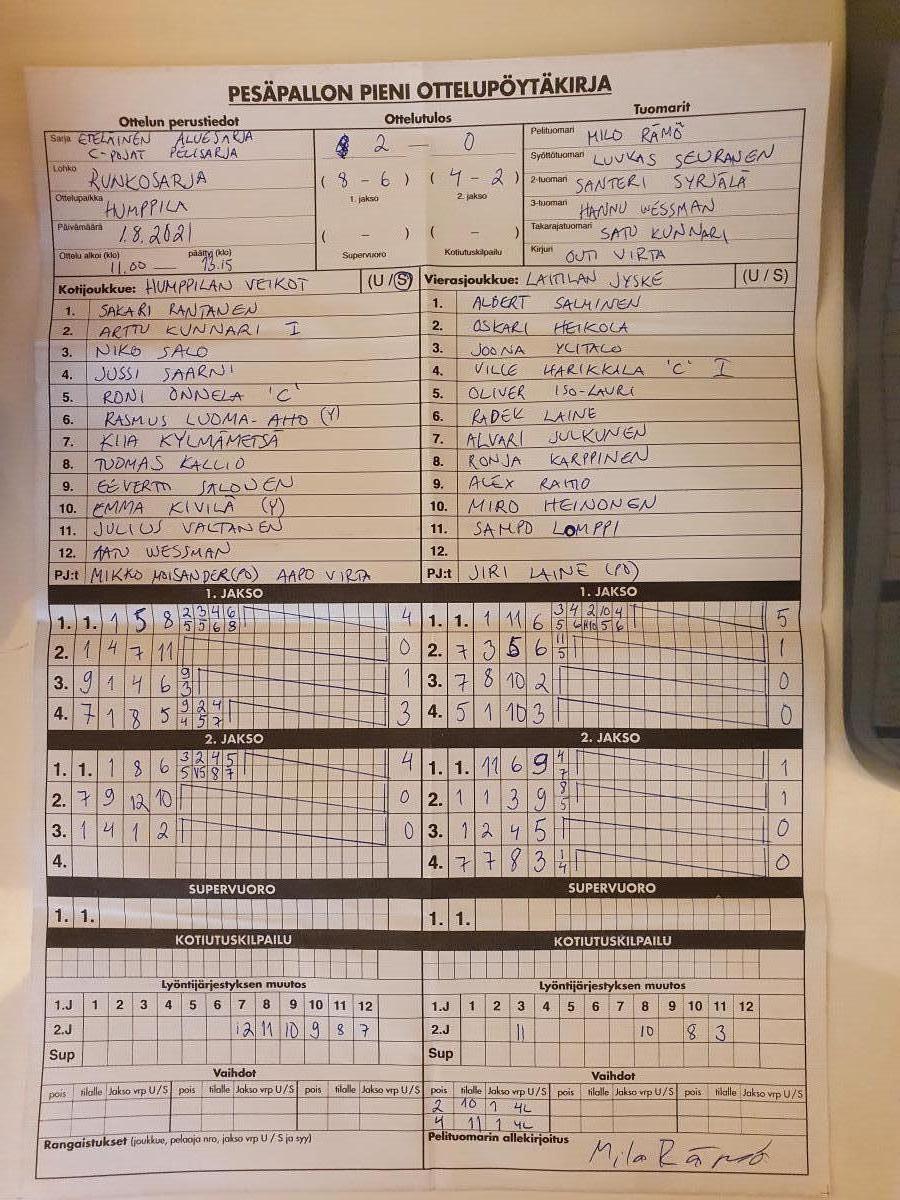 PESÄPALLON PIENI OTTELUPÖYTÄKIRJA
Ottelun perustiedot
Sarja ETELÄINEN ALUESARJA
C-POJAT PELISARJA
Lohko RUNKOSARJA
Ottelupaikka HUMPPILA
Päivämäärä 1.8.2021
Ottelu alkoi (klo) päättyi (klo)
11.00 — 13.15
Ottelutulos
2 — 0
( 8 - 6 ) ( 4 - 2 )
1. jakso 2. jakso
( - ) ( - )
Supervuoro Kotiutuskilpailu
Tuomarit
Pelituomari MILO RÄMÖ
Syöttötuomari LUUKAS SEURANEN
2-tuomari SANTERI SYRJÄLÄ
3-tuomari HANNU WESSMAN
Takarajatuomari SATU KUNNARI
Kirjuri OUTI VIRTA
Kotijoukkue: HUMPPILAN VEIKOT (U/S)
1. SAKARI RANTANEN
2. ARTTU KUNNARI I
3. NIKO SALO
4. JUSSI SAARNI
5. RONI ONNELA 'C'
6. RASMUS LUOMA-AHO (Y)
7. KIIA KYLMÄMETSÄ
8. TUOMAS KALLIO
9. EEVERTTI SALONEN
10. EMMA KIVILÄ (Y)
11. JULIUS VALTANEN
12. AATU WESSMAN
PJ:t MIKKO MOISANDER(PO) AAPO VIRTA
Vierasjoukkue: LAITILAN JYSKE (U / S)
1. ALBERT SALMINEN
2. OSKARI HEIKOLA
3. JOONA YLITALO
4. VILLE HARIKKALA 'C' I
5. OLIVER ISO-LAURI
6. RADEK LAINE
7. ALVARI JULKUNEN
8. RONJA KARPPINEN
9. ALEX RAITIO
10. MIRO HEINONEN
11. SAMPO LOMPPI
12.
PJ:t JIRI LAINE (PO)
1. JAKSO
1. 1. 1 5 8 2 3 4 6 4
5 5 6 8
2. 1 4 7 11 0
3. 9 1 4 6 9 1
3
4. 7 1 8 5 9 2 4 3
4 5 7
1. JAKSO
1. 1. 1 11 6 3 4 2 10 4 5
5 6
2. 7 3 5 6 11 1
5
3. 7 8 10 2 0
4. 5 1 10 3 0
2. JAKSO
1. 1. 1 8 6 3 2 4 5 4
5 8 7
2. 7 9 12 10 0
3. 1 4 1 2 0
4.
2. JAKSO
1. 1. 11 6 9 4 1
7
2. 1 1 3 9 8 1
5
3. 1 2 4 5 0
4. 7 7 8 3 1 0
4
SUPERVUORO
1. 1.
SUPERVUORO
1. 1.
KOTIUTUSKILPAILU
KOTIUTUSKILPAILU
Lyöntijärjestyksen muutos
1.J 1 2 3 4 5 6 7 8 9 10 11 12
2.J 12 11 10 9 8 7
Sup
Lyöntijärjestyksen muutos
1.J 1 2 3 4 5 6 7 8 9 10 11 12
2.J 11 10 8 3
Sup
Vaihdot
pois tilalle Jakso vrp U/S pois tilalle Jakso vrp U/S pois tilalle Jakso vrp U/S
Vaihdot
pois tilalle Jakso vrp U/S pois tilalle Jakso vrp U/S pois tilalle Jakso vrp U/S
2 10 1 4L
4 11 1 4L
Rangaistukset (joukkue, pelaaja nro, jakso vrp U / S ja syy)
Pelituomarin allekirjoitus
Milo Rämö